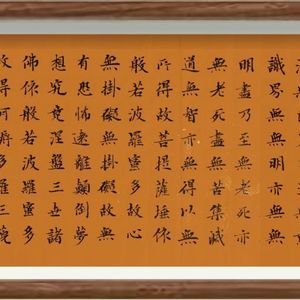 識界無無明亦無無
明盡乃至無老死亦
無老死盡無苦集滅
道無智亦無得以無
所得故菩提薩埵依
般若波羅蜜多故心
無掛礙無掛礙故無
有恐怖遠離顛倒夢
想究竟涅槃三世諸
佛依般若波羅蜜多
故得阿耨多羅三藐